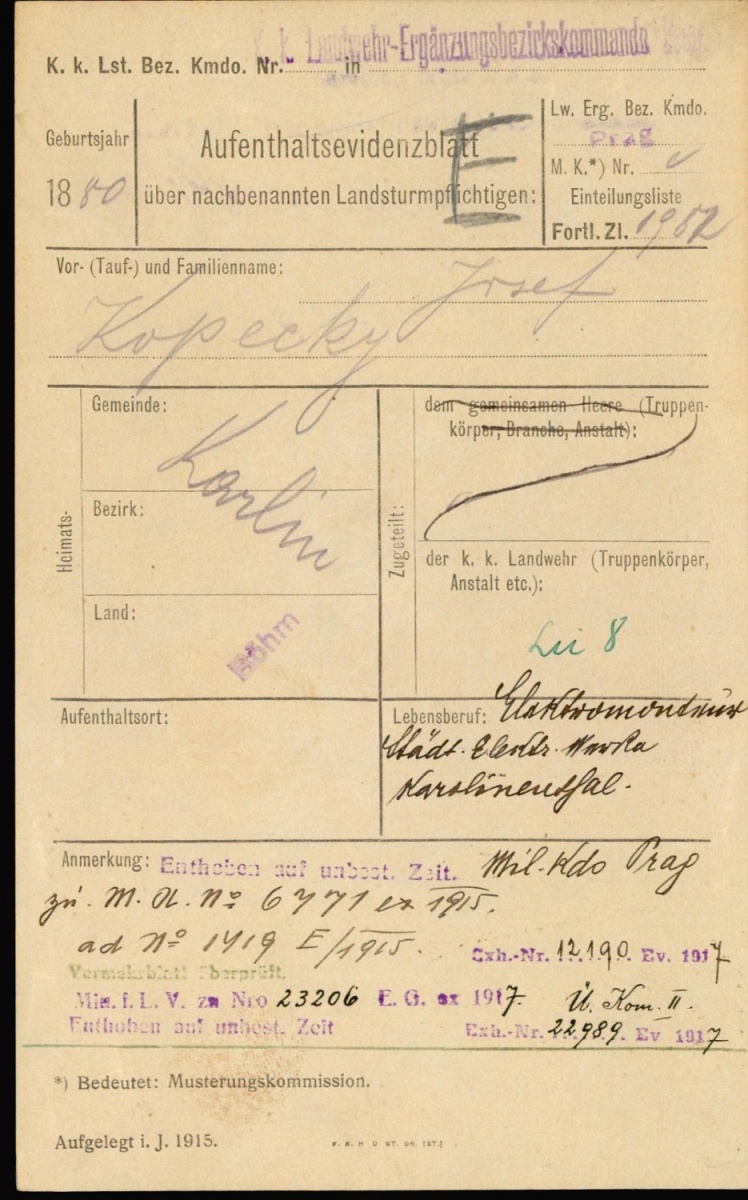 k. k. Landwehr-Ergänzungsbezirkskommando
K. k. Lst. Bez. Kmdo. Nr. in
Geburtsjahr
1880
Aufenthaltsevidenzblatt
über nachbenannten Landsturmpflichtigen:
E
Lw. Erg. Bez. Kmdo.
Prag
M. K.*) Nr.
Einteilungsliste
Fortl. Zl. 1982
Vor- (Tauf-) und Familienname:
Josef
Kopecky
Heimats-
Gemeinde:
Karlin
Bezirk:
Land:
Böhm
Zugeteilt:
dem gemeinsamen Heere (Truppen-
körper, Branche, Anstalt):
der k. k. Landwehr (Truppenkörper,
Anstalt etc.):
8
Aufenthaltsort:
Lebensberuf: Elektromonteur
Städt. Elektr. Werke
Karolinenthal.
Anmerkung: Enthoben auf unbest. Zeit. Mil. Kdo Prag
zu. M. A. No 6771 ex 1915.
ad No 1419 E/1915.
Exh.-Nr. 12.190. Ev. 1917
Vormerkblatt überprüft.
Min. f. L. V. zu Nro 23206 E. G. ex 1917. Ü. Kom. II.
Enthoben auf unbest. Zeit Exh.-Nr. 22.989. Ev 1917
*) Bedeutet: Musterungskommission.
Aufgelegt i. J. 1915.
K. K. H. U ST. DR. (ST.)